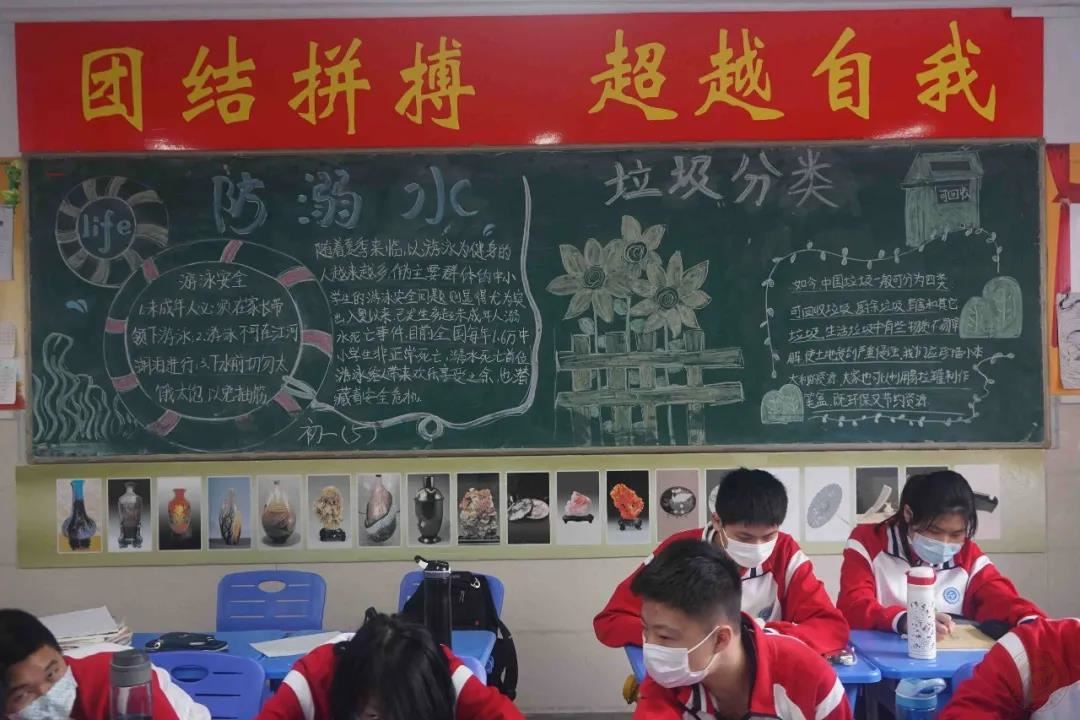 团结拼搏 超越自我
life
防溺水
游泳安全
1.未成年人必须在家长带
领下游泳.2.游泳不可在江河
湖泊进行.3.下水前切勿太
饿太饱.以免抽筋.
随着夏季来临,以游泳为健身的
人越来越多,作为主要群体的中小
学生的游泳安全问题则显得尤为突
出,入夏以来,已发生多起未成年人溺
水死亡事件.目前全国每年1.6万中
小学生非正常死亡.溺水死亡首位
游泳给人带来欢乐享受之余,也潜
藏着安全危机.
初一(5)
垃圾分类
可回收
如今,中国垃圾一般可分为四类
可回收垃圾.厨余垃圾.有害和其它
垃圾.生活垃圾中有些物质不易降
解,使土地受到严重侵蚀,我们应珍惜小米
大利的资源.大家也可以利用易拉罐制作
笔盒,既环保又节约资源